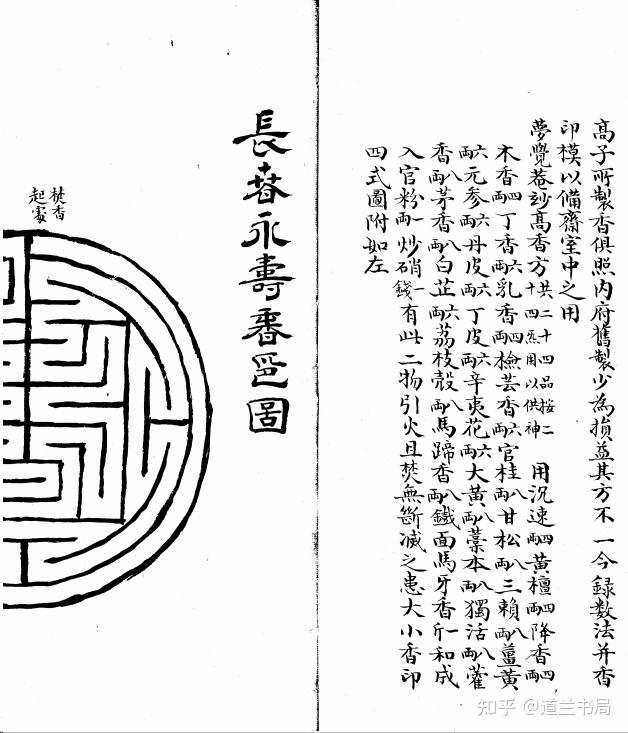 高子所製香俱照内府舊製少為損益其方不一今録數法并香
印模以備齋室中之用
夢覺菴玅髙香方共二十四品按二十四炁用以供神 用沉速四兩黄檀四兩降香四兩
木香四兩丁香六兩乳香四兩檢芸香六兩官桂八兩甘松八兩三頼八兩薑黄
六兩元参六兩丹皮六兩丁皮六兩辛夷花六兩大黄八兩藁本八兩獨活八兩藿
香八兩茅香八兩白芷六兩荔枝殻八兩馬蹄香八兩鐵面馬牙香一斤和成
入官粉一兩炒硝一錢有此二物引火且焚無斷滅之患大小香印
四式圖附如左
長春永壽香圖
焚香
起處
知乎 @道兰书局